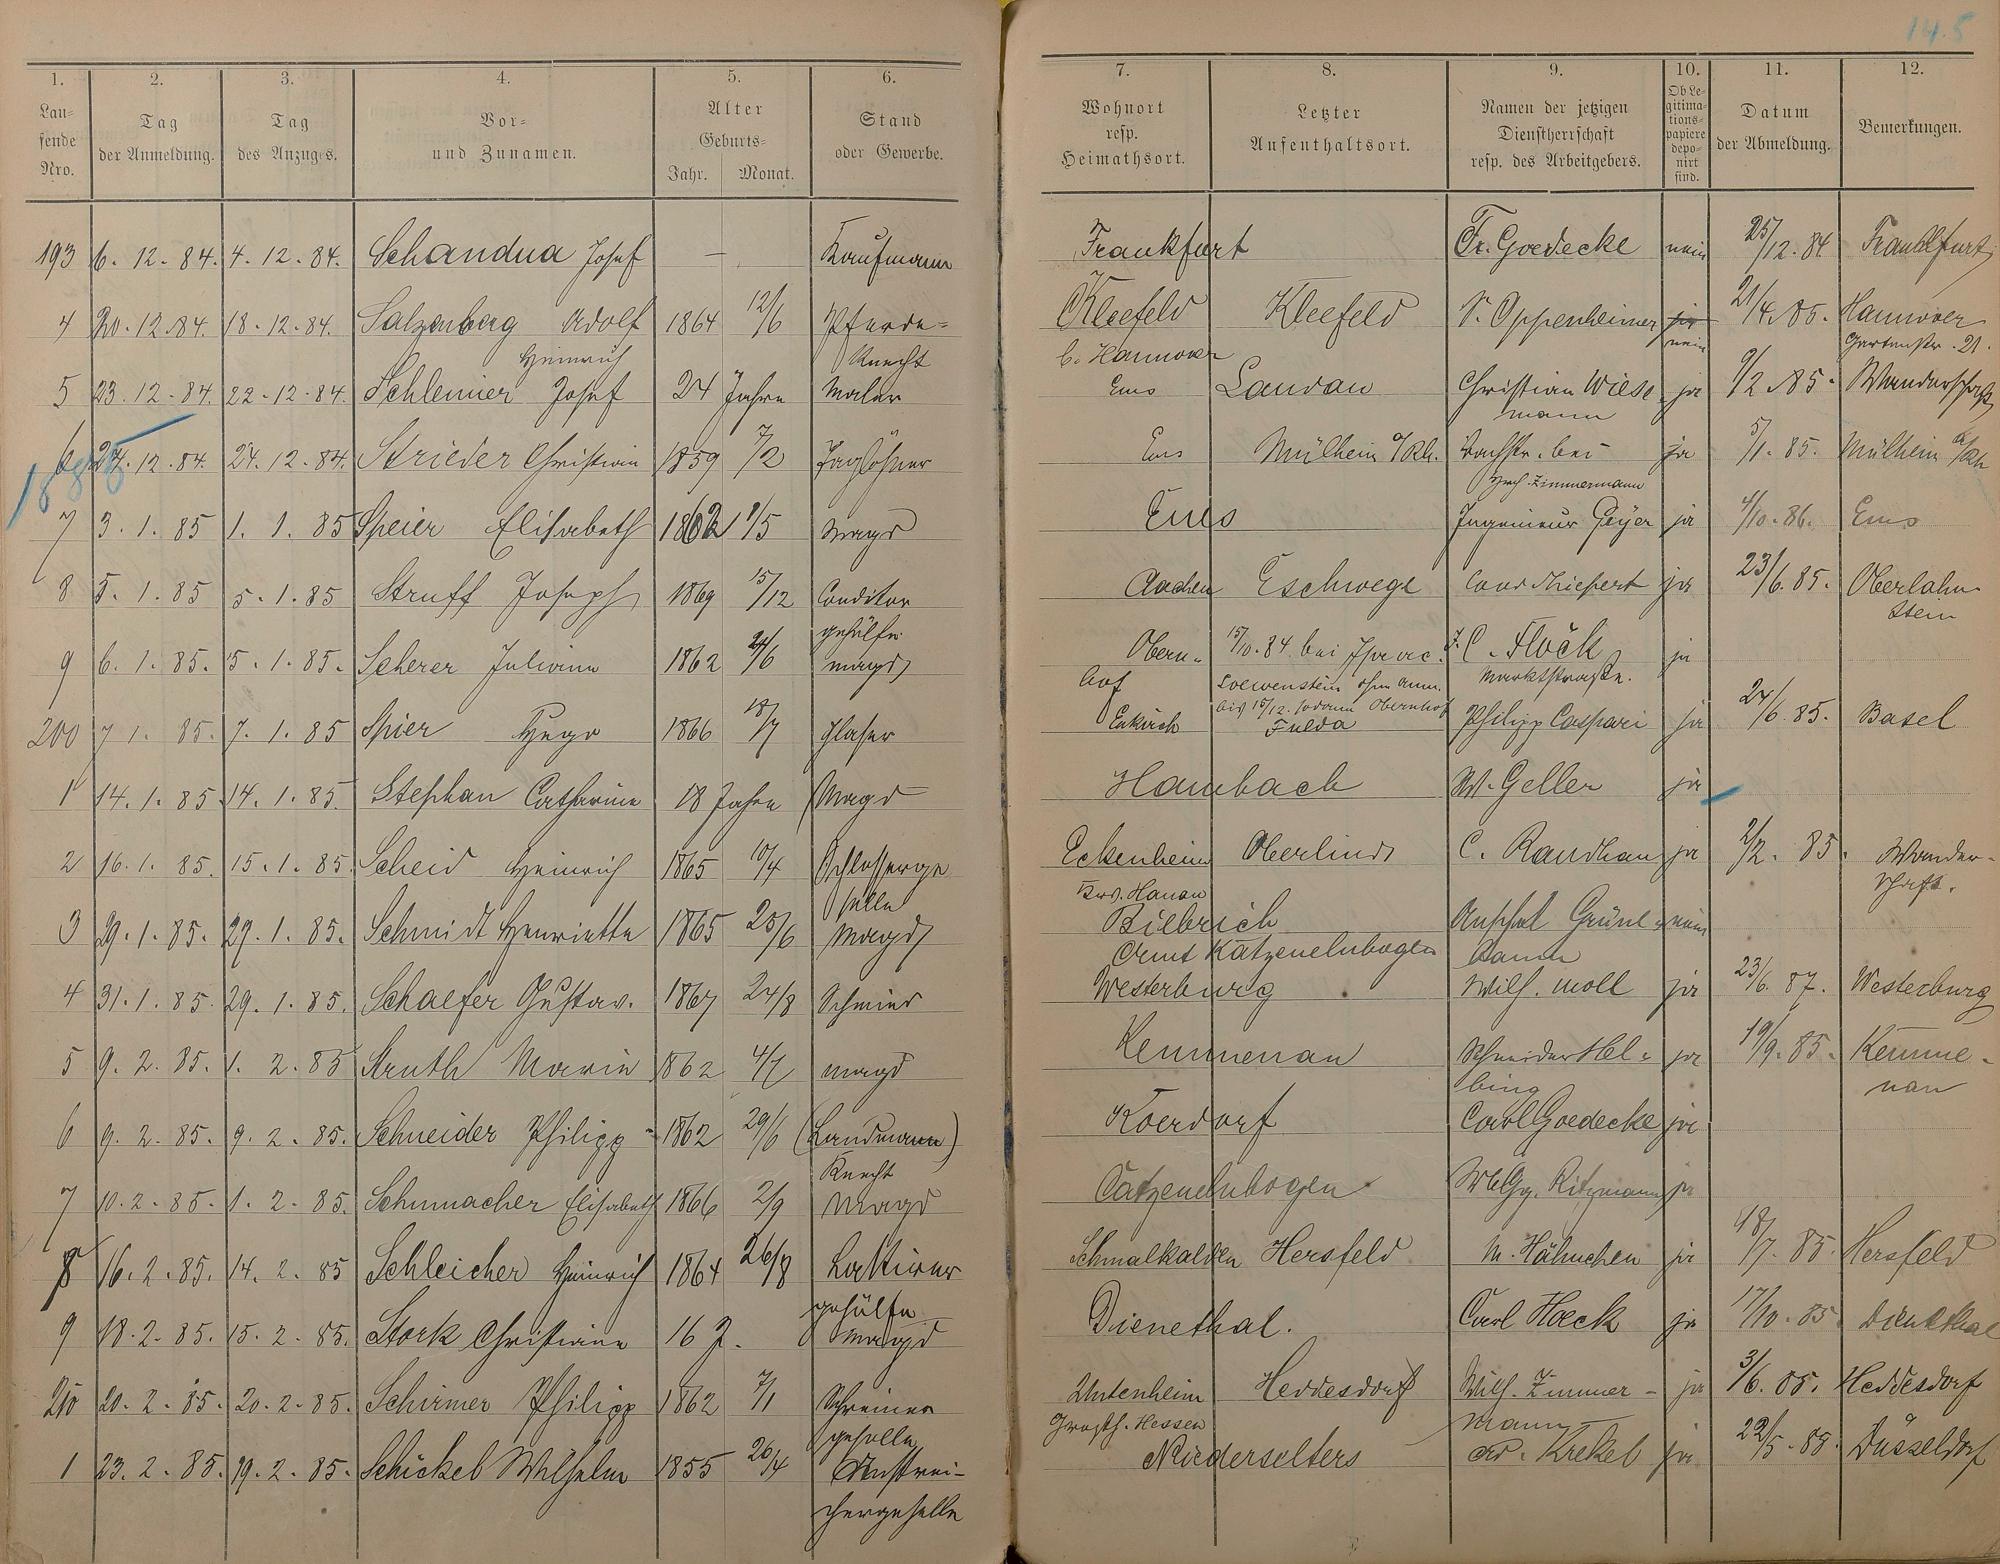 14.5
1. 2. 3. 4. 5. 6. 7. 8. 9. 10. 11. 12.
Lau-
fende
Nro.
Tag
der Anmeldung.
Tag
des Anzuges.
Vor-
und Zunamen.
Alter
Geburts-
Jahr. Monat.
Stand
oder Gewerbe.
Wohnort
resp.
Heimathsort.
Letzter
Aufenthaltsort.
Namen der jetzigen
Dienstherrschaft
resp. des Arbeitgebers.
Ob Le-
gitima-
tions-
papiere
depo-
nirt
sind.
Datum
der Abmeldung.
Bemerkungen.
193 6. 12. 84. 4. 12. 84. Schandua Josef — Kaufmann Frankfurt Fr. Goedecke nein 25/12. 84 Frankfurt
4 20. 12. 84. 18. 12. 84. Salzenberg Adolf 1864 12/6 Pferde= Kleefeld Kleefeld S. Oppenheimer ja 21/4. 85. Hannover
Heinrich Knecht b. Hannover nein Gartenstr. 21.
5 23. 12. 84. 22. 12. 84. Schlemmer Josef 24 Jahre Maler Ems Landau Christian Wiese ja 9/2. 85. Wanderschaft
mann
6 27. 12. 84. 24. 12. 84. Strieder Christian 1859 7/2 Taglöhner Ems Mülheim a/Rh. Bachstr. bei ja 5/1. 85. Mülheim a/Rh
Hrch. Zimmermann
1885
7 3. 1. 85 1. 1. 85 Speier Elisabeth 1862 9/5 Magd Ems Ingenieur Geyer ja 4/10. 86. Ems
8 5. 1. 85 5. 1. 85 Struff Joseph 1869 15/12 Conditor Aachen Eschwege Cond Thiefert ja 23/6. 85. Oberlahn-
gehülfe stein
9 6. 1. 85. 5. 1. 85. Scherer Juliane 1862 24/6 Magd Obern- 15/10. 84. bei Isaac J. C. Flöck ja
hof Loewenstein ohne Anm. Marktstraße.
bis 15/12. sodann Obernhof
200 7. 1. 85. 7. 1. 85 Spier Hugo 1866 18/7 Glaser Enkirch Fulda Philipp Caspari ja 24/6. 85. Basel
1 14. 1. 85 14. 1. 85. Stephan Catharine 18 Jahre Magd Hambach W. Geller ja
2 16. 1. 85. 15. 1. 85 Scheid Heinrich 1865 10/4 Schlosserge Eckenheim Oberlind C. Randhan ja 2/2. 85. Wander-
selle Krs. Hanau schaft.
3 29. 1. 85. 27. 1. 85. Schmidt Henriette 1865 25/6 Magd Bilbrich Anschel Grüne- nein
Amt Katzenelnbogen baum
4 31. 1. 85. 29. 1. 85. Schaefer Gustav. 1867 24/8 Schmied Westerburg Wilh. Moll ja 23/6. 87. Westerburg
5 9. 2. 85. 1. 2. 85 Struth Marie 1862 4/7 Magd Kemmenau Schneider Hel- ja 19/9. 85. Kemme-
bing nau
6 9. 2. 85. 9. 2. 85. Schneider Philipp 1862 29/6 (Landmann) Koerdorf Carl Goedecke ja
Knecht
7 10. 2. 85. 1. 2. 85. Schumacher Elisabeth 1866 2/9 Magd Catzenelnbogen Ritzmann ja
8 16. 2. 85. 14. 2. 85 Schleicher Heinrich 1864 26/8 Lakirer Schmalkalden Hersfeld M. Hähnchen ja 18/7. 85. Hersfeld
gehülfe
9 18. 2. 85. 15. 2. 85. Stork Christiane 16 J. Magd Dienethal. Carl Hoeck ja 17/10. 85 Dienethal
210 20. 2. 85. 20. 2. 85. Schirmer Philipp 1862 7/1 Schreiner Undenheim Heddesdorf Wilh. Zimmer- ja 3/6. 85. Heddesdorf
geselle Grosh. Hessen mann
1 23. 2. 85. 19. 2. 85. Schickel Wilhelm 1855 26/4 Anstrei- Niederselters Ad. Krekel ja 22/5. 85. Düsseldorf
chergeselle